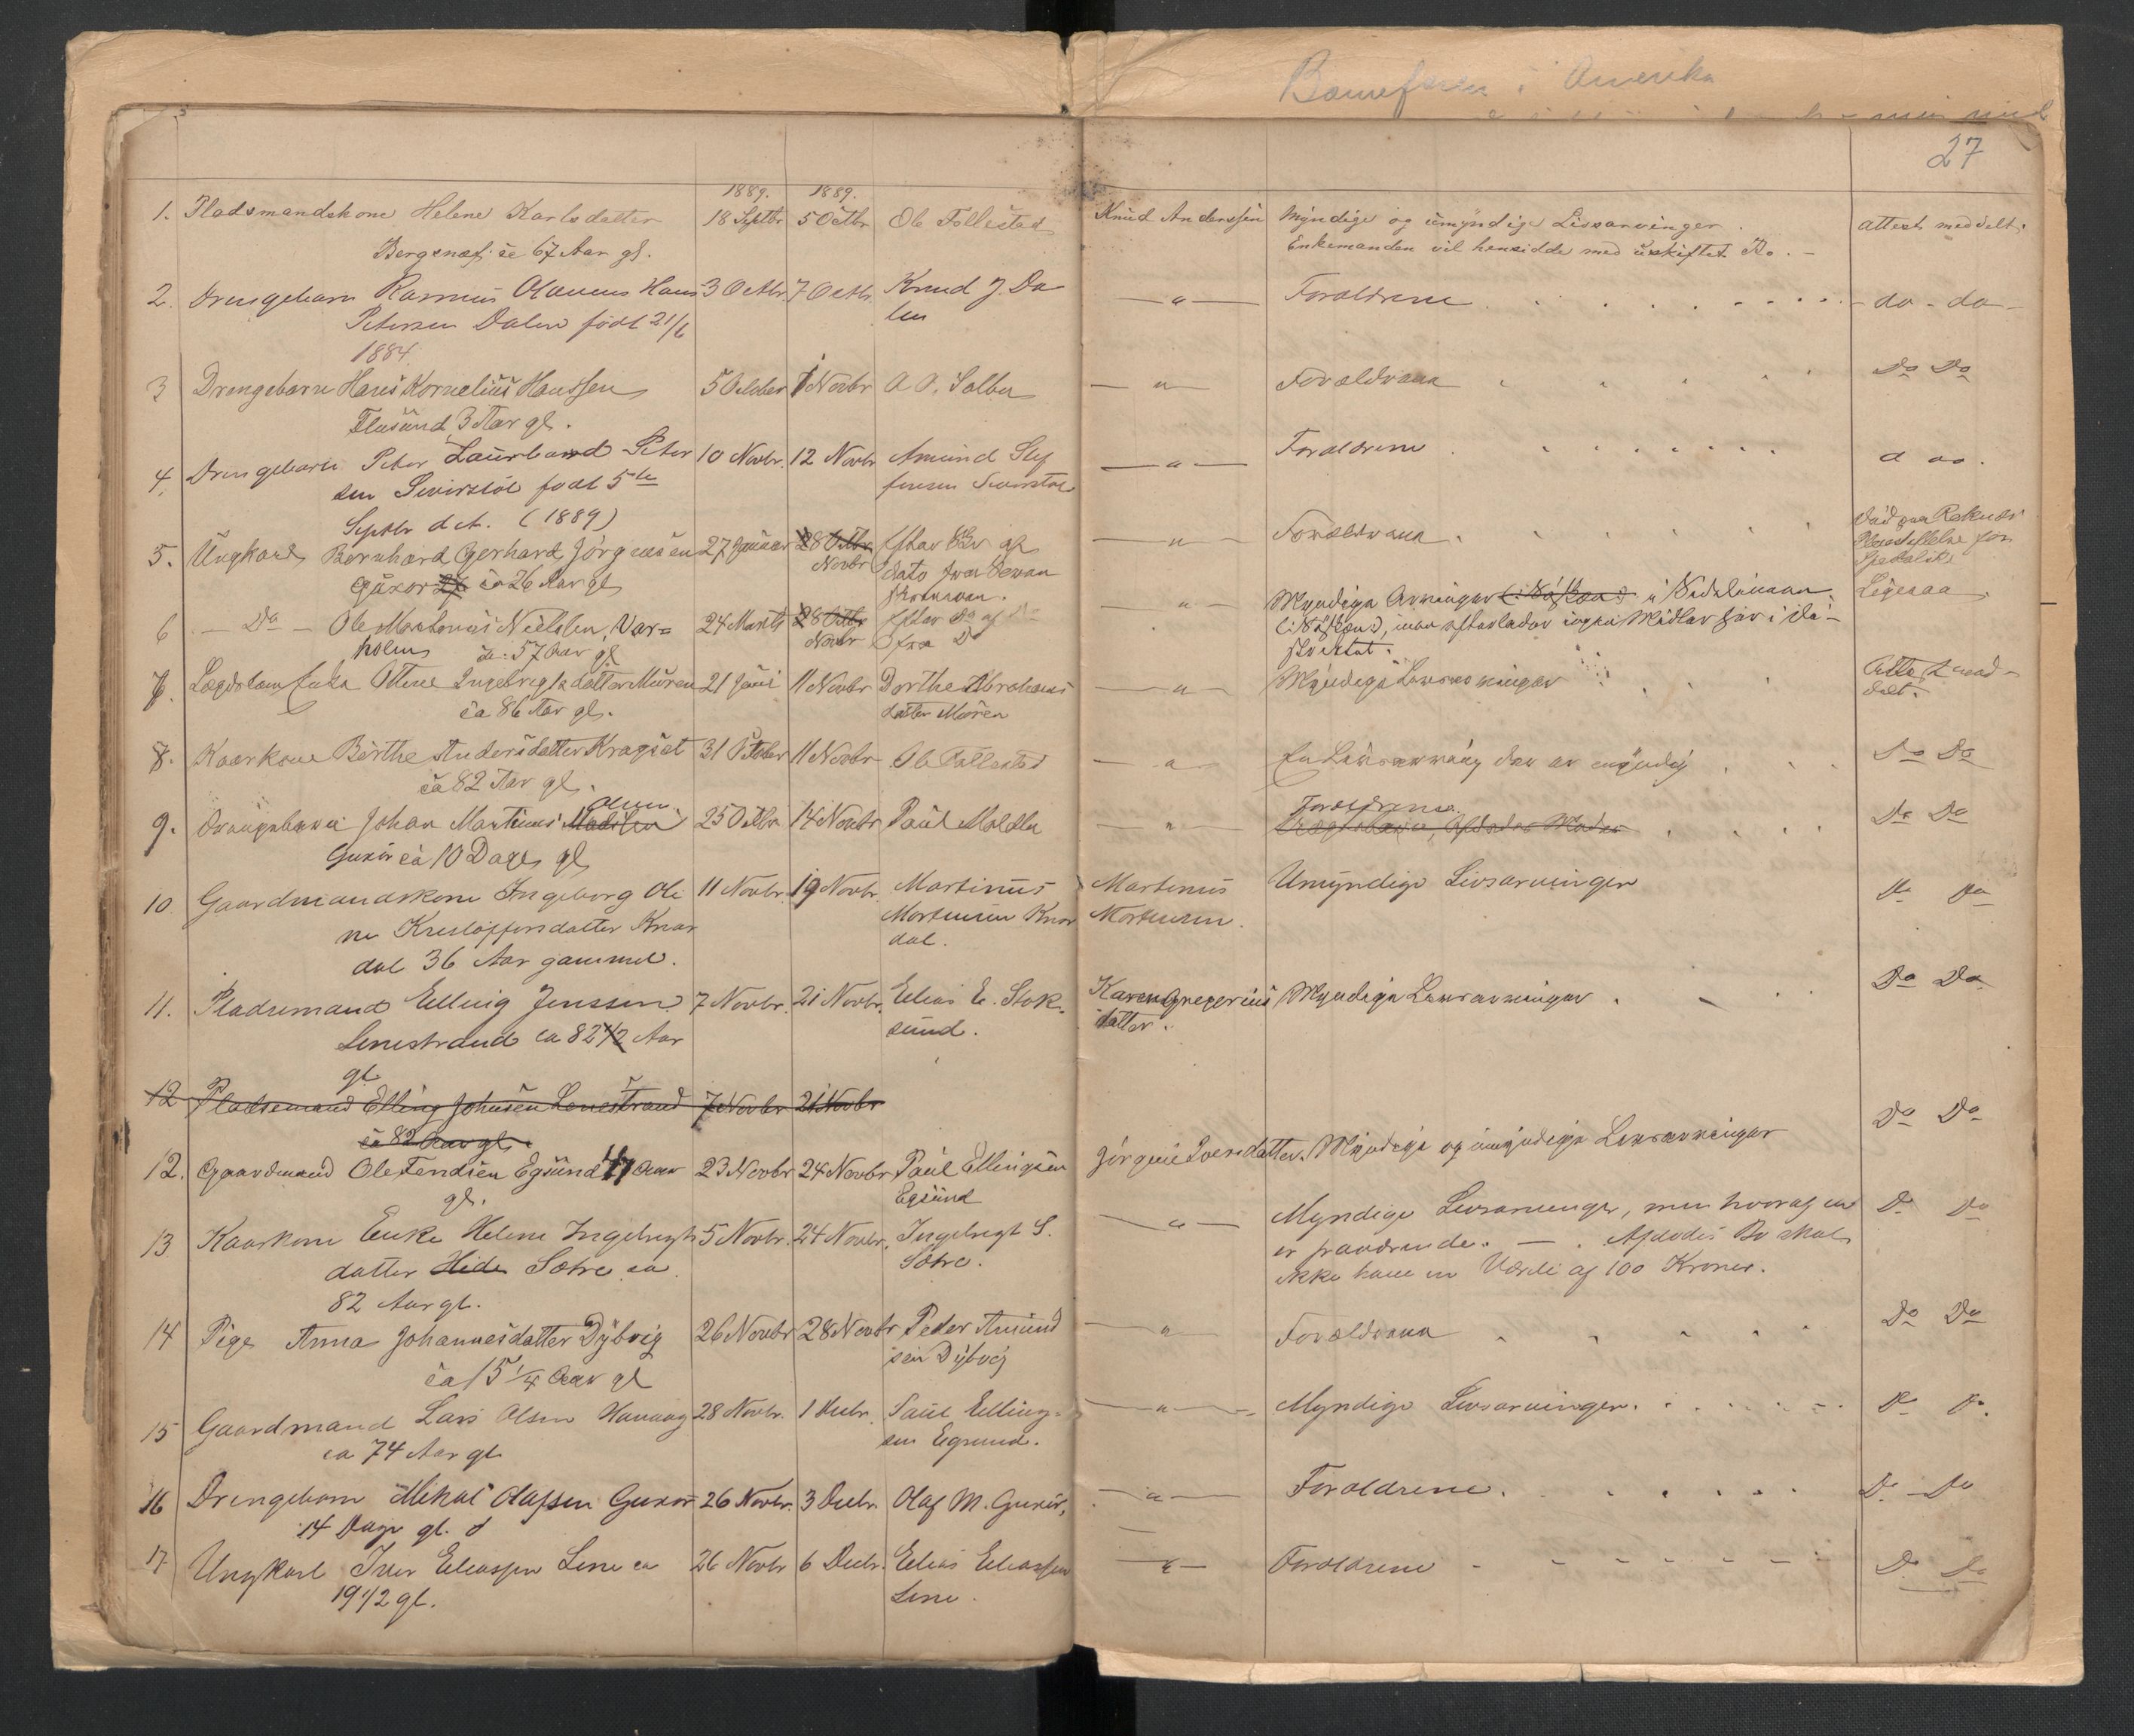 Barnefaren i Amerika
27
1889. 1889.
1. Pladsmandskone Helene Karlsdatter 18 Septbr 5 Octbr Ole Follestad Knud Anderssen Myndige og umyndige Livsarvinger. Attest meddelt.
Bergsnæs ca 67 Aar gl. Enkemanden vil hensidde med uskiftet Bo. -
2. Drengebarn Rasmus Olaus Hans 3 Octbr. 7 Octbr. Knud J. Da — " — Forældrene do - do -
Petersen Dalen født 21/6 len
1884
3 Drengebarn Hans Kornelius Hanssen 5 October 1 Novbr A. A. Solbu — " — Forældrene Do Do
Flusund, 3 Aar gl.
4. Drengebarn Peter Laurband Peter 10 Novbr. 12 Novbr Amund Stef — " — Forældrene d do.
sen født 5te fensen
Septbr d. A. (1889)
5. Ungkarl Bernhard Gerhard Jörgensen 27 Januar 28 Octbr Efter Br af — " — Forældrene Död paa Reknæs
Novbr dato fra Pleiestiftelse for
Gurskø 27 ca 26 Aar gl Spedalske
6 — Do — Ole Martinus Nielsen, Var= 24 Marts 28 Octbr Efter Do af Do — " — Myndige Arvinger (Söskend) i Sidelinien Ligesaa
holm ca: 57 Aar gl Novbr fra Do (Söskend), men efterlader ingen Midler her i Di-
striktet.
7. Lægdslem Enke Oline Ingebrigtsdatter Muren 21 Juni 11 Novbr Dorthe Abrahams — " — Myndige Livsarvinger Attest med-
ca 86 Aar gl. datter Muren delt.
8. Kaarkone Berthe Andersdatter Kragset 31 October 11 Novbr Ole Follestad — " — En Livsarving der er myndig Do Do
ca 82 Aar gl.
9. Drengebarn Johan Martinus Madsen Olsen 25 Octbr 14 Novbr Paul Moldtu — " — Forældrene Do Do
Gurskø ca 10 Dage gl
10. Gaardmandskone Ingeborg Oli 11 Novbr. 19 Novbr. Martinus Martinus Umyndige Livsarvinger Do Do
ne Kristoffersdatter Knar Mortensen Knar Mortensen.
dal 36 Aar gammel. dal.
11. Pladsmand Elling Jenssen 7 Novbr. 21 Novbr. Elias E. Stok- Karen Gregerius Myndige Livsarvinger Do Do
Lenestrand ca 82 1/2 Aar sund. datter.
gl.
12 Pladsemand Elling Johnsen Lenestrand 7 Novbr 21 Novbr
ca 82 Aar gl.
12. Gaardmand Ole Fendsen Egsund 47 Aar 23 Novbr 24 Novbr Paul Ellingsen Jörgine Iversdatter. Myndige og umyndige Livsarvinger Do Do
gl. Egsund
13 Kaarkone Enke Helene Ingebrigts 5 Novbr. 24 Novbr. Ingebrigt S. — " — Myndige Livsarvinger, men hvoraf en Do Do
datter Hide Sætre ca Sætre. er fraværende. — . Afdødes Bo skal
82 Aar gl. ikke have en Værdi af 100 Kroner.
14 Pige Anna Johannesdatter Dybvig 26 Novbr 28 Novbr Peder Amund — " — Forældrene Do Do
ca 15 1/4 Aar gl sen Dybvig
15 Gaardmand Lars Olsen Havaag 28 Novbr. 1 Decbr. Paul Elling- — " — Myndige Livsarvinger. Do Do.
ca 74 Aar gl. sen Egsund.
16 Drengebarn Mikal Olafsen Gurskø 26 Novbr. 3 Decbr. Olaf M. Gurskø, — " — Forældrene. Do - Do
14 Dage gl.
17 Ungkarl Iver Eliassen Lene ca 26 Novbr 6 Decbr. Elias Eliassen — " — Forældrene Do Do
19 1/2 gl. Lene.